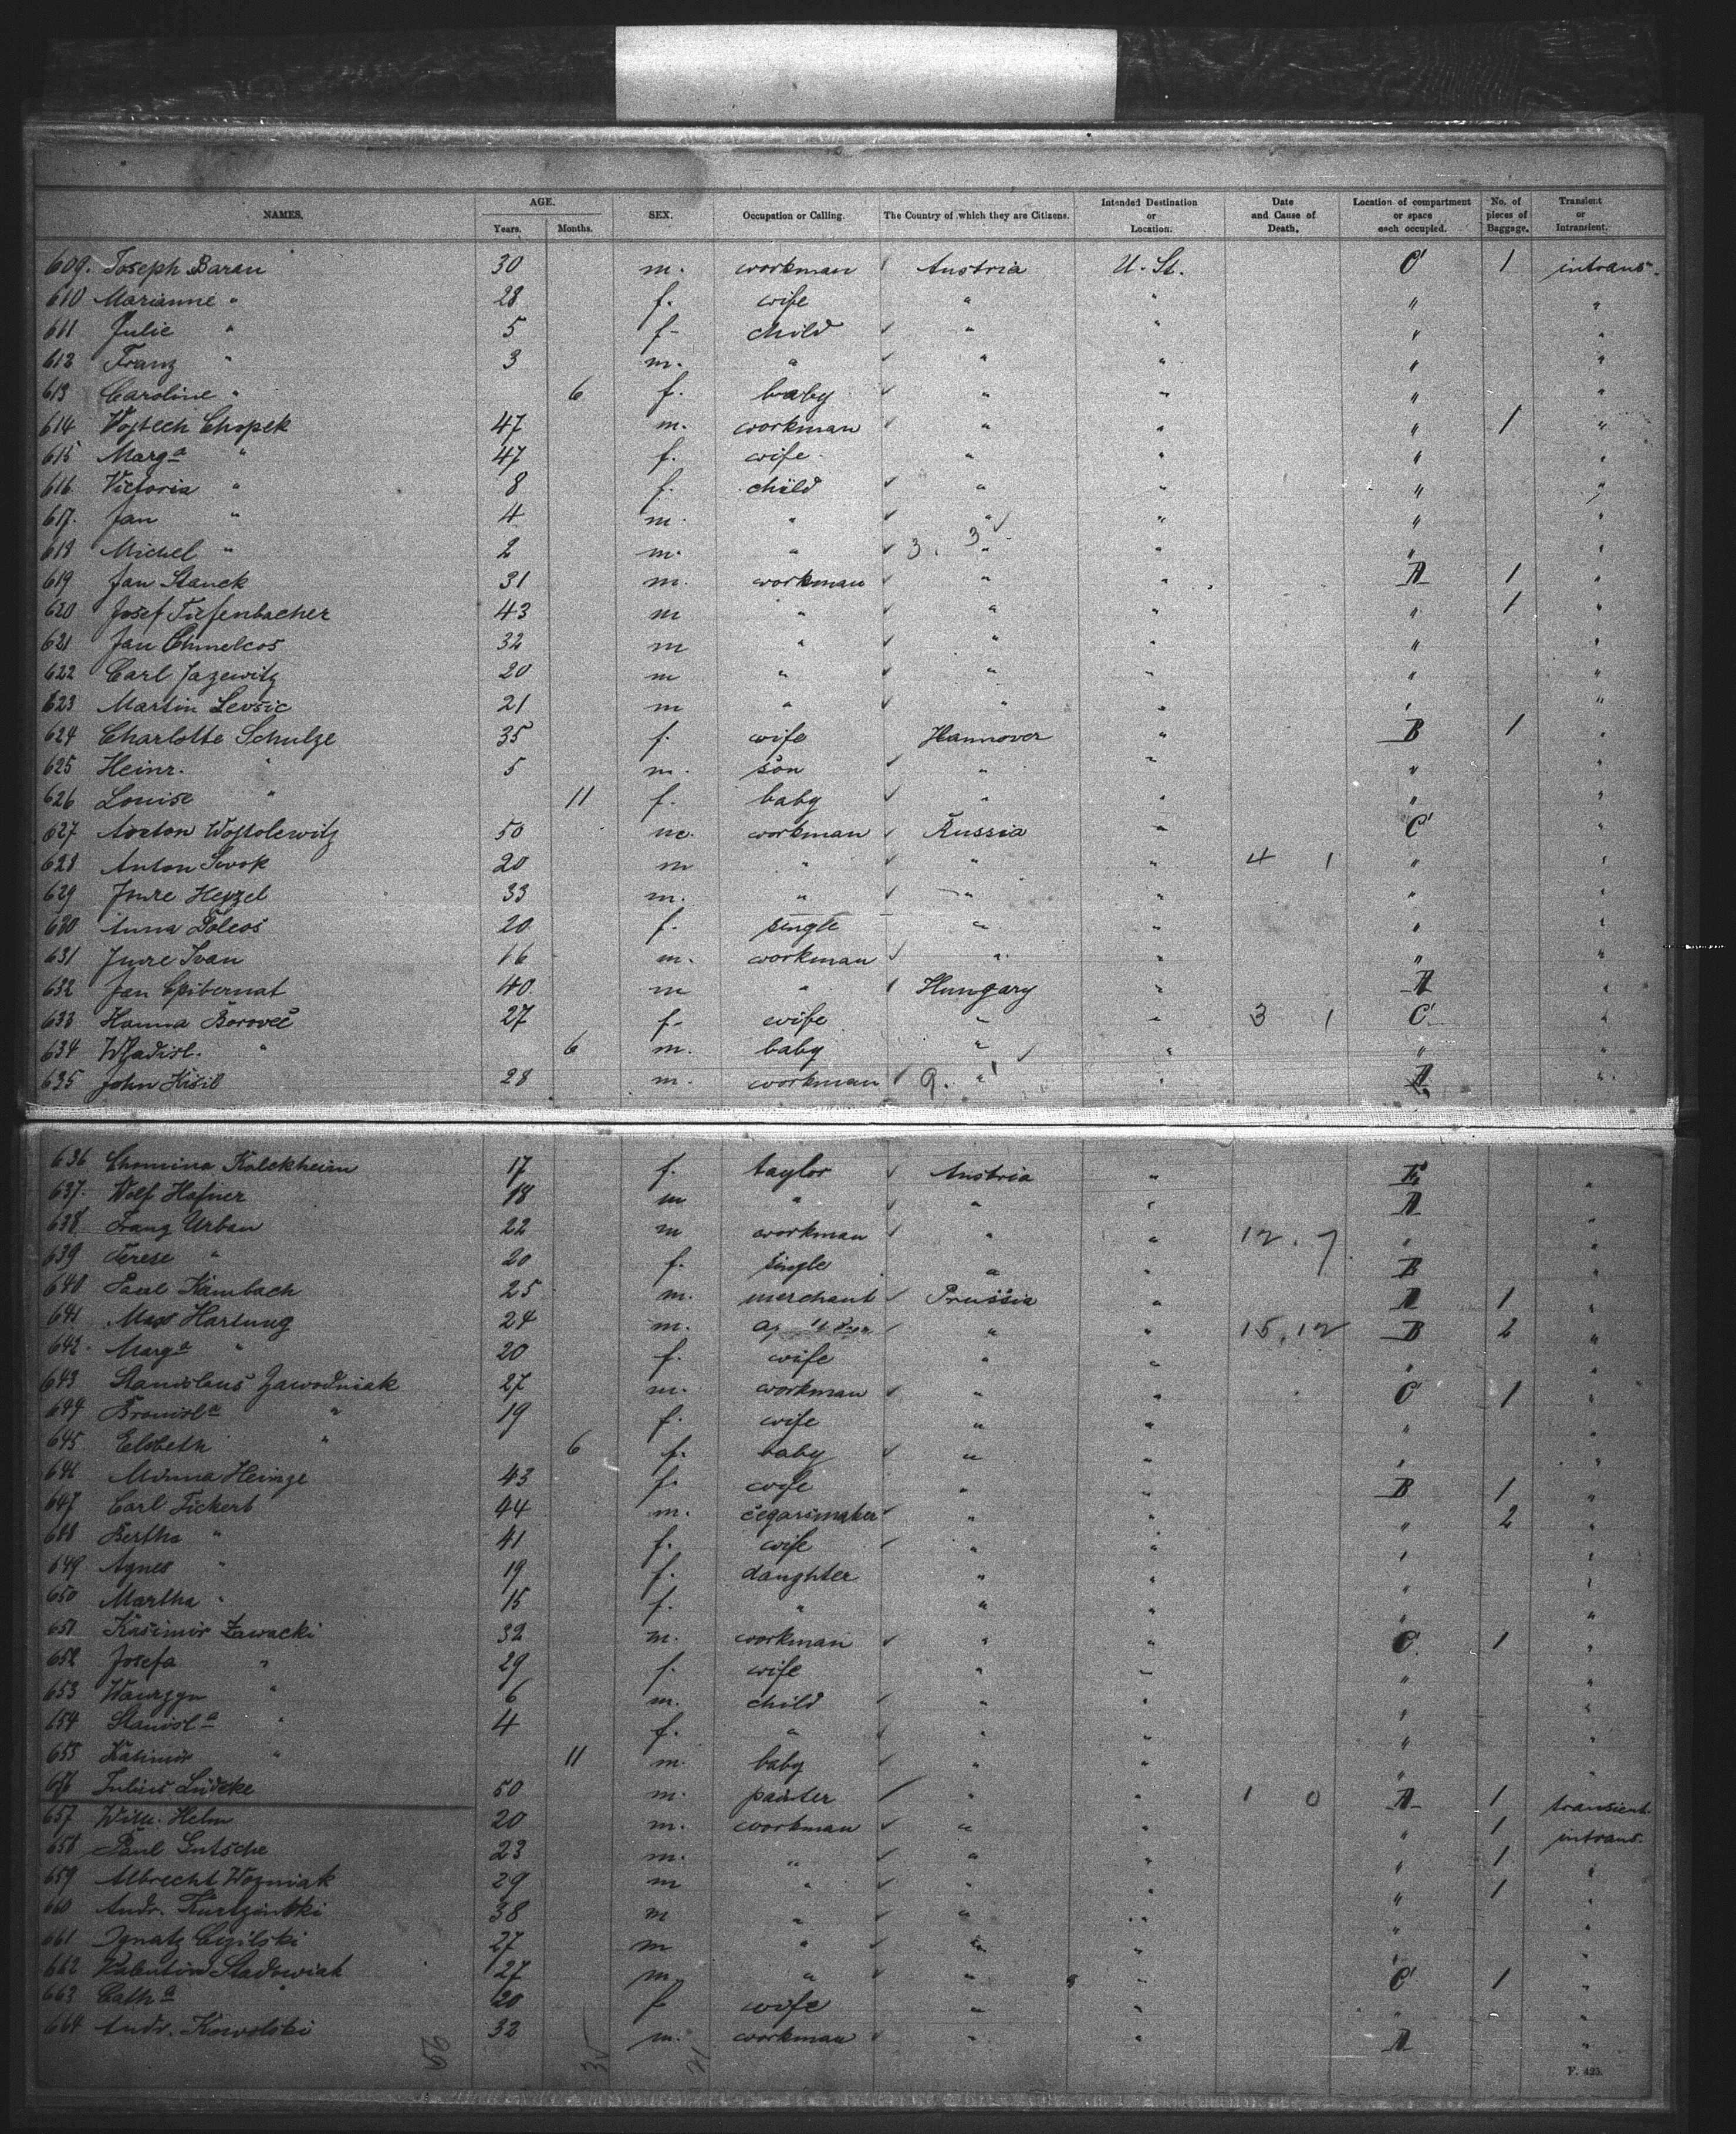 NAMES. AGE. Years. Months. SEX. Occupation or Calling. The Country of which they are Citizens. Intended Destination or Location. Date and Cause of Death. Location of compartment or space each occupied. No. of pieces of Baggage. Transient or Intransient.
609. Joseph Baran 30 m. workman Austria U. St. C 1 intrans.
610 Marianne " 28 f. wife " " " "
611 Julie " 5 f- child " " " "
612 Franz " 3 m. " " " " "
613 Caroline " 6 f. baby " " " "
614 Wojtech Chopek 47 m. workman " " " 1 "
615 Marga " 47 f. wife " " " "
616 Victoria " 8 f. child " " " "
617. Jan " 4 m. " " " " "
618 Michel " 2 m. " 3. 3 " " " "
619 Jan Stanek 31 m. workman " " A 1 "
620 Josef Tiefenbacher 43 m " " " " 1 "
621 Jan Chmelcos 32 m " " " " "
622 Carl Jazewitz 20 m " " " " "
623 Martin Levsic 21 m " " " " "
624 Charlotte Schulze 35 f. wife Hannover " B 1 "
625 Heinr. " 5 m. son " " " "
626 Louise " 11 f. baby " " " "
627 Anton Wojtolewitz 50 m. workman Russia " C "
628 Anton 20 m " " " 4 1 " "
629 33 m. " " " " "
630 Anna 20 f. single " " " "
631 Ivan 16 m. workman " " " "
632 Jan 40 m " Hungary " A "
633 Hanna Borovec 27 f. wife " " 3 1 C "
634 Wladisl. " 6 m. baby " " " "
635 John Kisil 28 m. workman 9. " " A "
636 Kalckheim 17 f. taylor Austria " "
637. Wolf Hafner 18 m " " " A "
638 Franz Urban 22 m workman " " 12. 7. " "
639 Terese " 20 f. single " " B "
640 Paul Kambach 25 m. merchant Prussia " A 1 "
641 Max Hartung 24 m. " " 15. 12 B 2 "
642. Marga " 20 f. wife " " " "
643 Stanislaus Zawodniak 27 m. workman " " C 1 "
644 Bronisla " 19 f. wife " " " "
645 Elsbeth " 6 f. baby " " " "
646 Minna Heinze 43 f. wife " " B 1 "
647 Carl Fickert 44 m. cegarsmaker " " " 2 "
648 Bertha " 41 f. wife " " " "
649 Agnes " 19 f. daughter " " " "
650 Martha " 15 f. " " " " "
651 Kasimir Zawacki 32 m. workman " " C. 1 "
652 Josefa " 29 f. wife " " " "
653 Wawrzyn " 6 m. child " " " "
654 Stanisla " 4 f. " " " " "
655 Kasimir " 11 m. baby " " " "
656 Julius Lüdeke 50 m. painter " " 1 0 A 1 transient.
657 Wilh. Helm 20 m. workman " " " 1 intrans.
658 Paul Gutsche 23 m. " " " " 1 "
659 Albrecht Wozniak 29 m " " " " 1 "
660 Andr. 38 m " " " " "
661 Ignatz 27 m " " " " "
662 Valentin Stadowiak 27 m " " " C 1 "
663 Catha " 20 f wife " " " "
664 Andr. Kowolski 32 m. workman " " A "
F. 425.